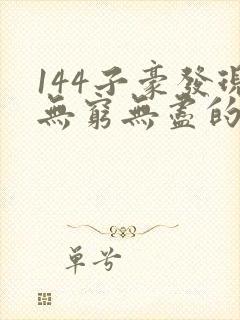 144子豪發現
無窮無盡的
單兮